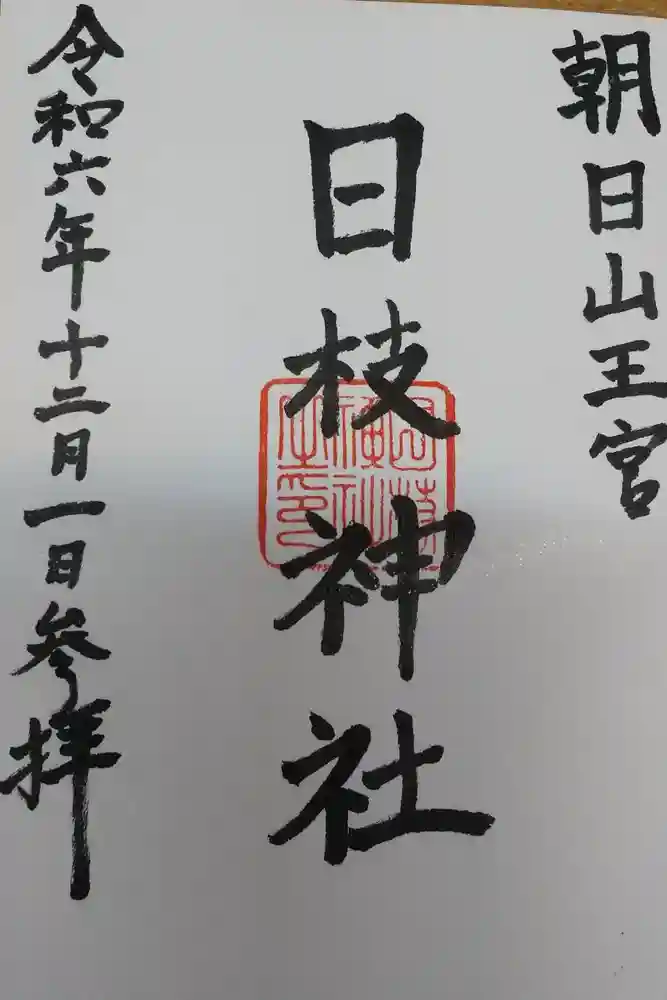 朝日山王宮
日枝神社
令和六年十二月一日参拝